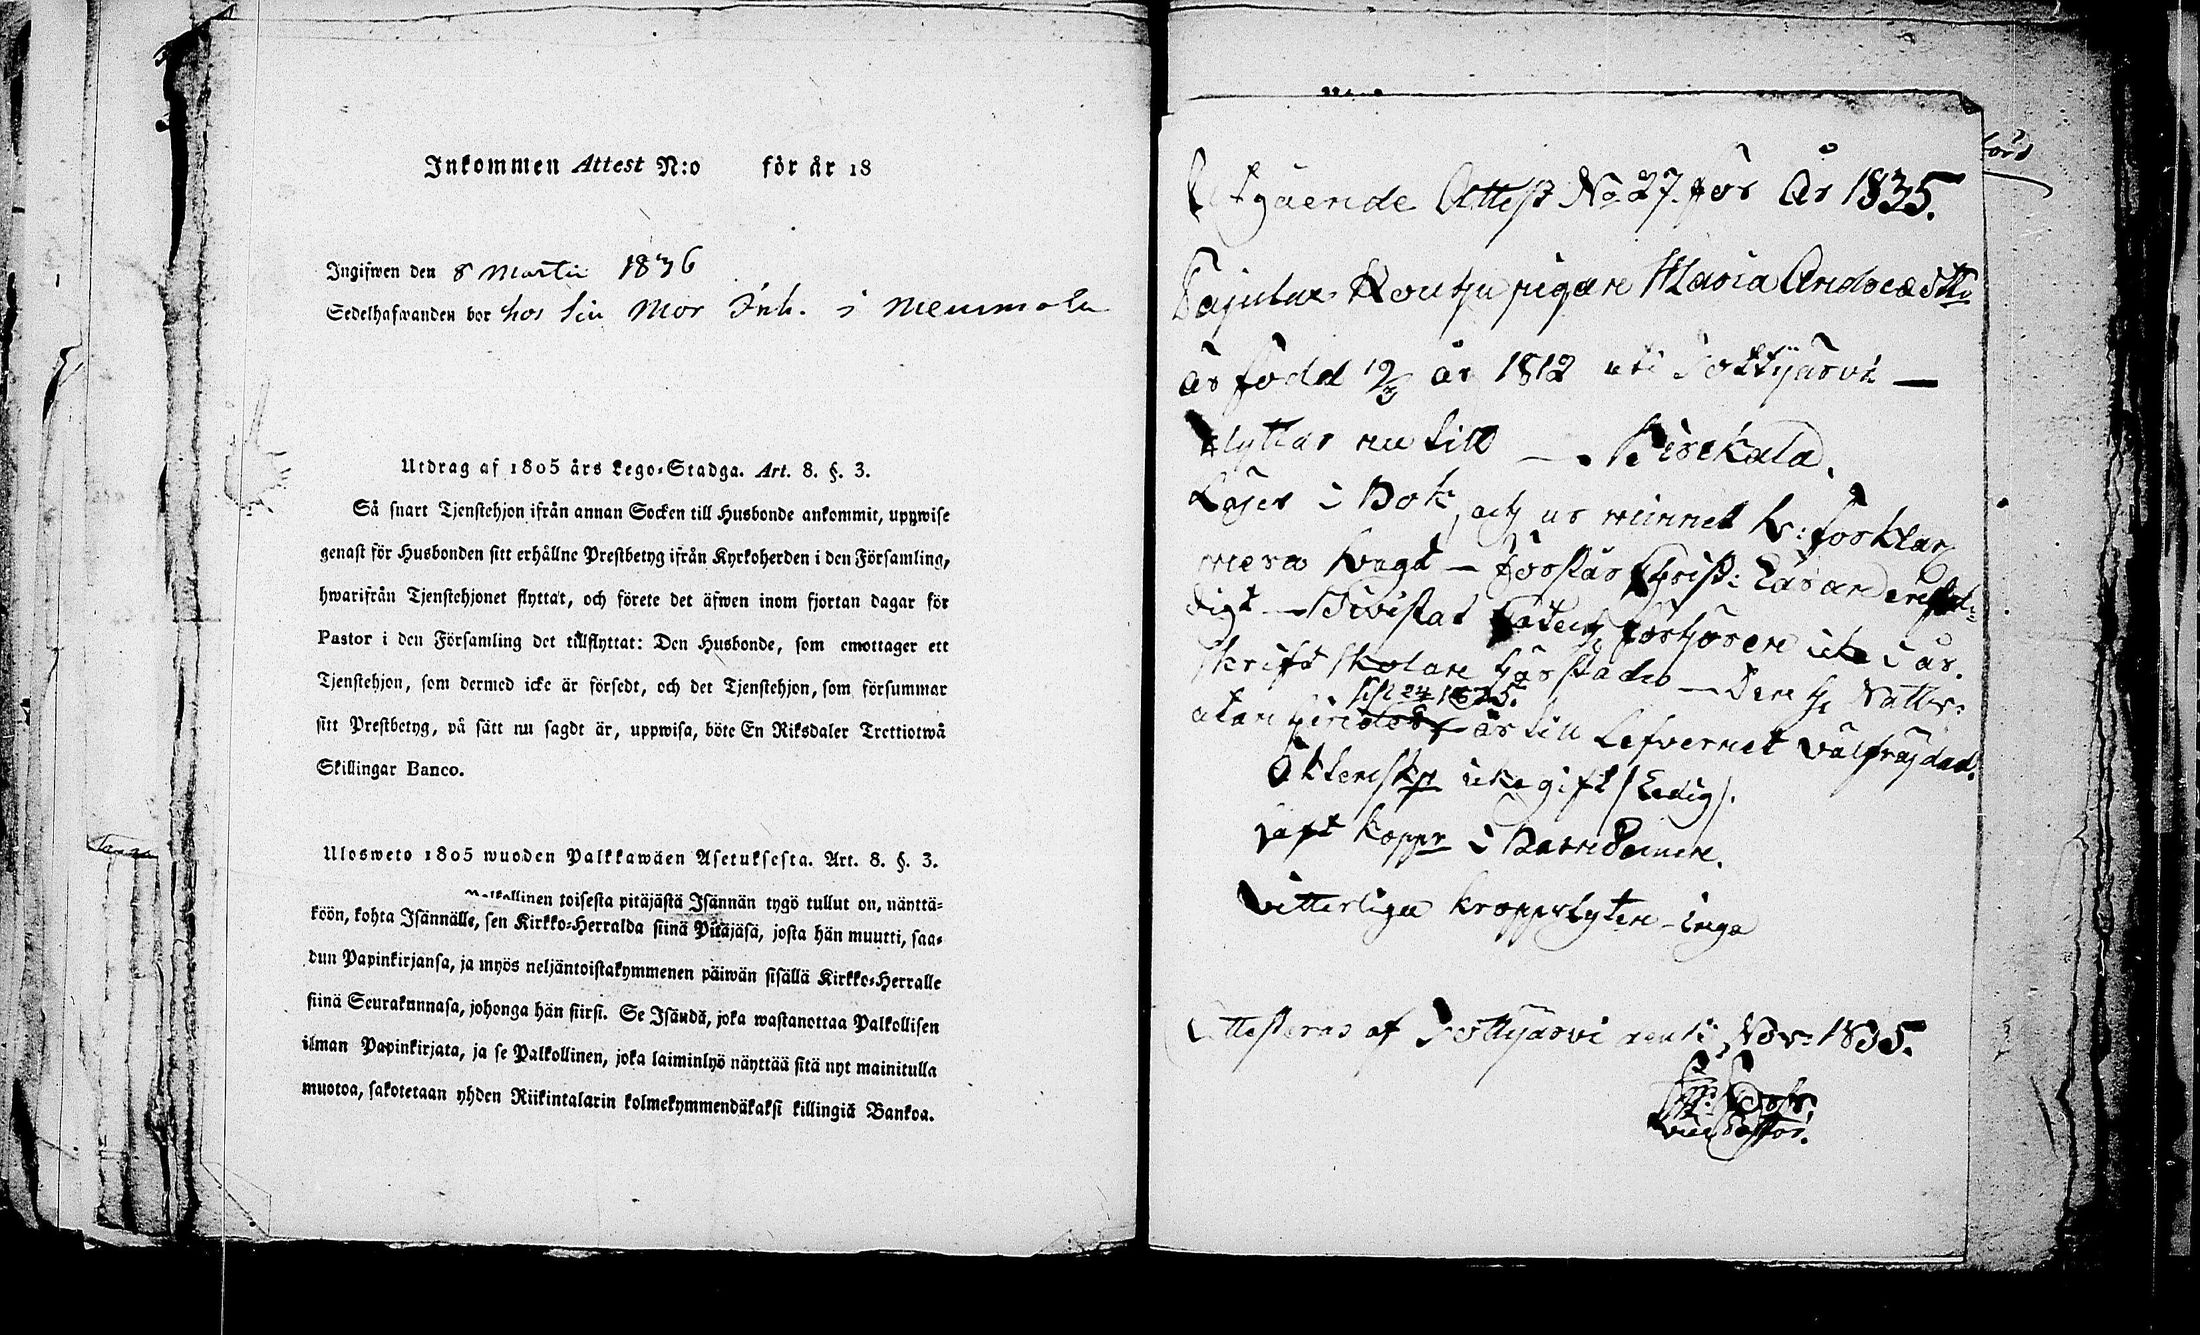 Inkommen Attest N:o för år 18
Ingifwen den 8 Martii 1836
Sedelhafwanden bor hos sin Mor Inh. i Memmola
Utdrag af 1805 års Lego-Stadga. Art. 8. §. 3.
Så snart Tjenstehjon ifrån annan Socken till Husbonde ankommit, uppwise
genast för Husbonden sitt erhållne Prestbetyg ifrån Kyrkoherden i den Församling,
hwarifrån Tjenstehjonet flyttat, och förete det äfwen inom fjortan dagar för
Pastor i den Församling det tillflyttat: Den Husbonde, som emottager ett
Tjenstehjon, som dermed icke är försedt, och det Tjenstehjon, som försummar
sitt Prestbetyg, på sätt nu sagdt är, uppwisa, böte En Riksdaler Trettiotwå
Skillingar Banco.
Ulosweto 1805 wuoden Palkkawäen Asetuksesta. Art. 8. §. 3.
Palkollinen toisesta pitäjästä Isännän tygö tullut on, näyttä-
köön, kohta Isännälle, sen Kirkko-Herralda siinä Pitäjäsä, josta hän muutti, saa-
dun Papinkirjansa, ja myös neljäntoistakymmenen päiwän sisällä Kirkko-Herralle
siinä Seurakunnasa, johonga hän siirsi. Se Isändä, joka wastanottaa Palkollisen
ilman Papinkirjata, ja se Palkollinen, joka laiminlyö näyttää sitä nyt mainitulla
muotoa, sakotetaan yhden Riikintalarin kolmekymmendäkaksi killingiä Bankoa.
Utgående Attest No 27. för År 1835.
Pajula Kouhju pigan Maria Andreæ dttr
är född 12/3 år 1812 uti Pottjärvi —
flyttar nu till —. Birckala.
Läser i Bok, och ur minnet hv: förklar
mera svagt — förstår Christ: Läran
digt — Bivistat förhören
skrift skolan — Den H Nattv:
sist 24 1835.
är till Lefvernet välfräjdad.
Äktensk icke gift (Ledig).
haft koppr i Barndomen.
Vitterliga kroppslyten - Inga
Attesteras af Pottjärvi den Nov: 1835.
vice Pastor.